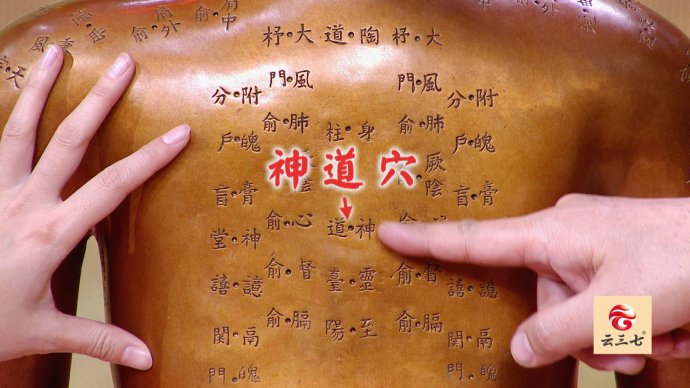 杼·大 道·陶 杼·大
門·風 門·風
分·附 分·附
俞·肺 柱·身 俞·肺
戶·魄 戶·魄
神道穴
厥陰
肓·膏 肓·膏
堂·神 俞·心 道·神
俞·督 臺·靈 俞·督
譆·譩 譆·譩
俞·膈 陽·至 俞·膈
關·鬲 關·鬲
云三七